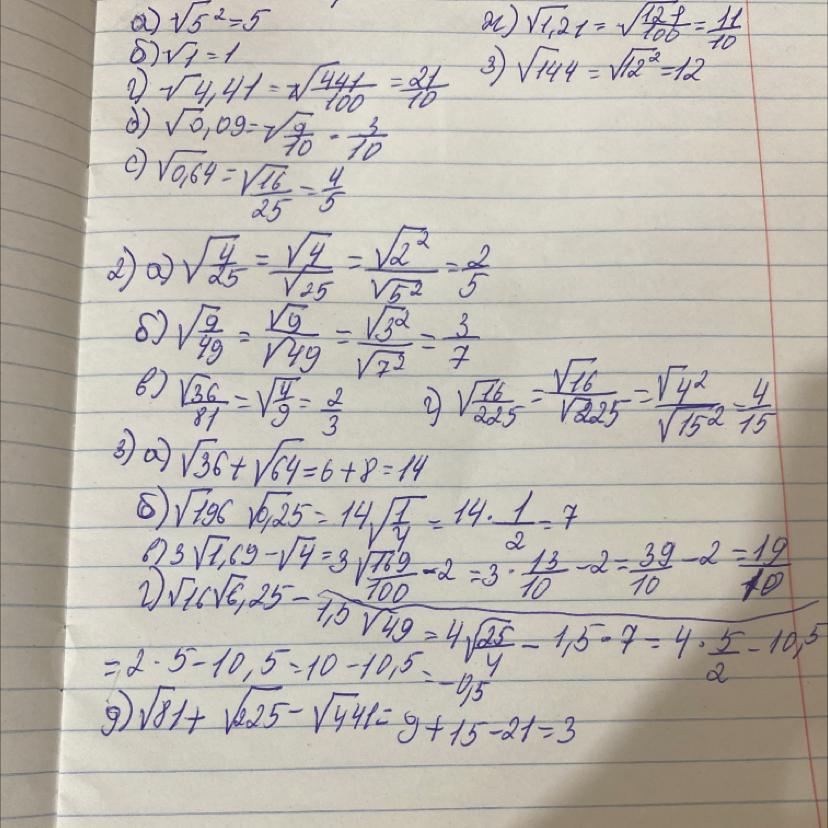 а) √5² = 5
б) √1 = 1
г) √4,41 = √441/100 = 21/10
д) √0,09 = √9/10 = 3/10
с) √0,64 = √16/25 = 4/5
ж) √1,21 = √121/100 = 11/10
з) √144 = √12² = 12
2) а) √4/25 = √4/√25 = √2²/√5² = 2/5
б) √9/49 = √9/√49 = √3²/√7² = 3/7
в) √36/81 = √4/9 = 2/3 г) √16/225 = √16/√225 = √4²/√15² = 4/15
3) а) √36 + √64 = 6 + 8 = 14
б) √196 √0,25 = 14√1/4 = 14 · 1/2 = 7
в) 3√1,69 - √4 = 3√169/100 - 2 = 3 · 13/10 - 2 = 39/10 - 2 = 19/10
г) √16√6,25 - 1,5√49 = 4√25/4 - 1,5 · 7 = 4 · 5/2 - 10,5
= 2 · 5 - 10,5 = 10 - 10,5 = -0,5
д) √81 + √225 - √441 = 9 + 15 - 21 = 3